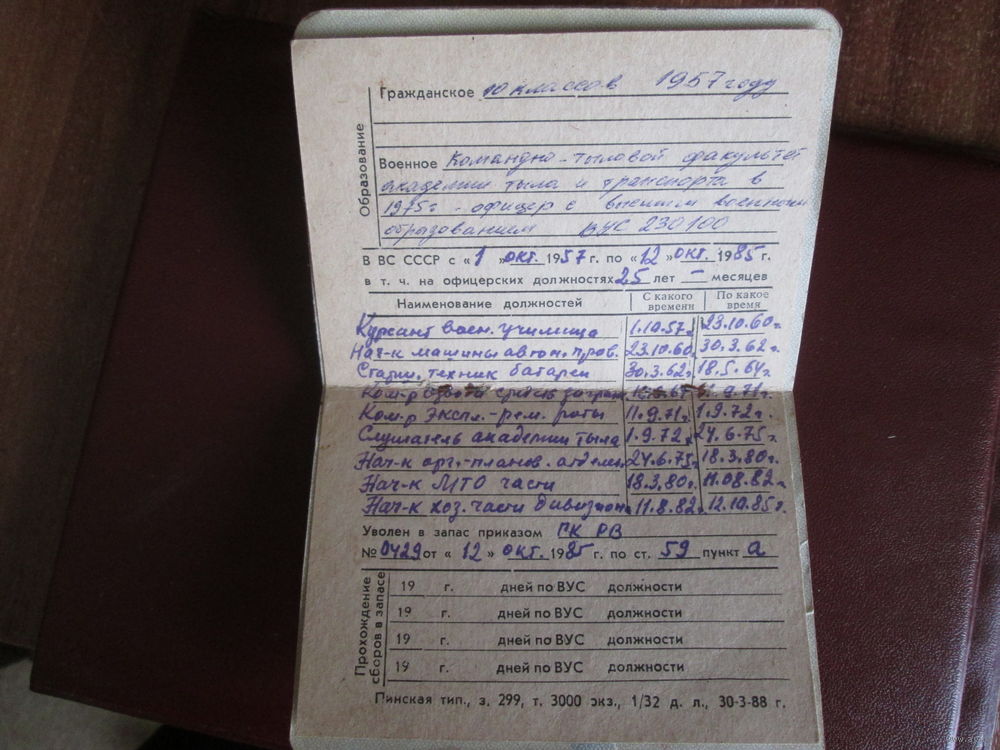 Образование
Гражданское 10 классов 1957 году
Военное Командно-тыловой факультет
академии тыла и транспорта в
1975г - офицер с высшим военным
образованием ВУС 230100
В ВС СССР с « 1 » окт. 1957 г. по « 12 » окт. 1985 г.
в т. ч. на офицерских должностях 25 лет — месяцев
Наименование должностей С какого времени По какое время
Курсант воен. училища 1.10.57г. 23.10.60г.
Нач-к машины автом. пров. 23.10.60. 30.3.62г.
Старш. техник батареи 30.3.62г. 18.5.64г.
Ком-р 11.9.71г.
Ком-р Экспл.-рем. роты 11.9.71г. 1.9.72г.
Слушатель академии тыла 1.9.72г. 24.6.75г.
Нач-к орг.-планов. отделен. 24.6.75г. 18.3.80г.
Нач-к МТО части 18.3.80г. 11.08.82г.
Нач-к хоз. части дивизиона 11.8.82г. 12.10.85г.
Уволен в запас приказом ГК РВ
№ 0429 от « 12 » окт. 1985 г. по ст. 59 пункт а
Прохождение сборов в запасе
19 г. дней по ВУС должности
19 г. дней по ВУС должности
19 г. дней по ВУС должности
19 г. дней по ВУС должности
Пинская тип., з. 299, т. 3000 экз., 1/32 д. л., 30-3-88 г.